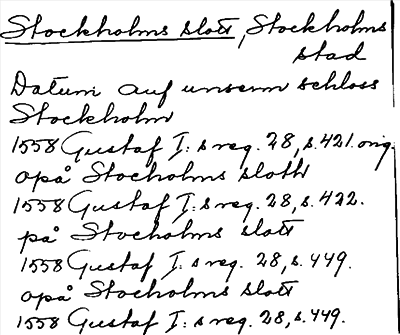 Stockholms slott, Stockholms
stad
Datum auf unserm schloss
Stockholm
1558 Gustaf I:s reg. 28, s. 421. orig.
opå Stocholms slotth
1558 Gustaf I:s reg. 28, s. 422.
på Stocholms slott
1558 Gustaf I:s reg. 28, s. 449.
opå Stocholms slott
1558 Gustaf I:s reg. 28, s. 449.